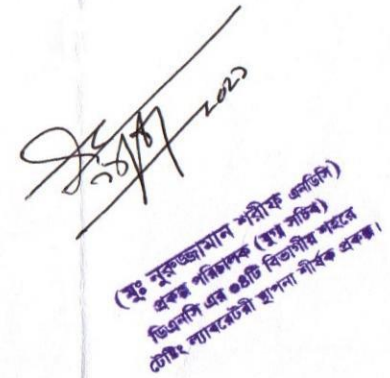 ২০২১
(মুঃ নুরুজ্জামান শরীফ এনডিসি)
প্রকল্প পরিচালক (যুগ্ম সচিব)
ডিএনসি এর ০৪টি বিভাগীয় শহরে
টেস্টিং ল্যাবরেটরী স্থাপনা শীর্ষক প্রকল্প।